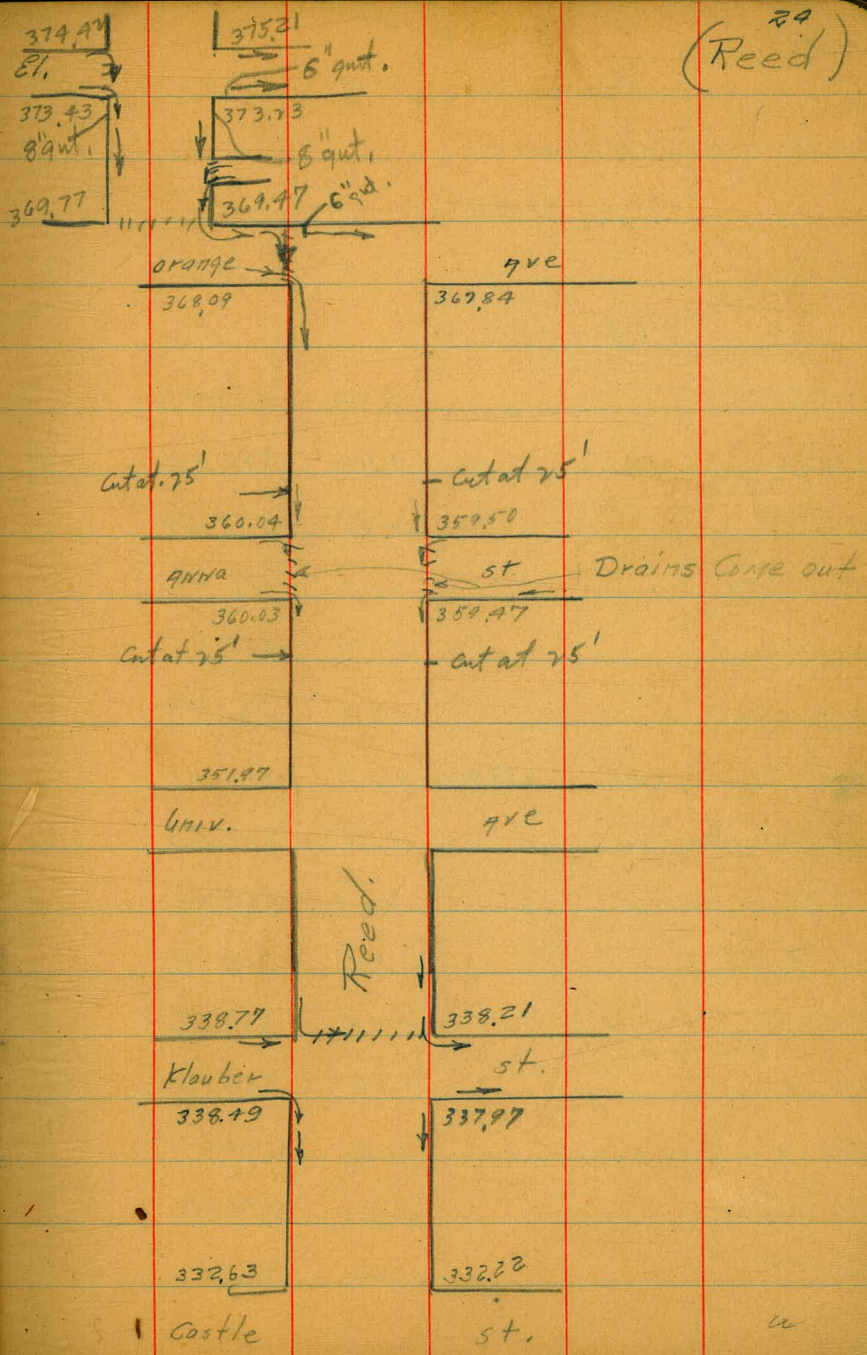 24
(Reed)
375.21
El.
6" gut.
373.43
373.23
8" gut.
8" gut.
369.77
369.47
6" gut.
Orange Ave
368.09
367.84
Cut at 25'
Cut at 25'
360.04
359.50
Anna st
Drains Come out
360.03
359.47
Cut at 25'
Cut at 25'
351.97
Univ. Ave
Reed.
338.77
338.21
Klauber st.
338.49
337.97
332.63
332.22
Castle st.